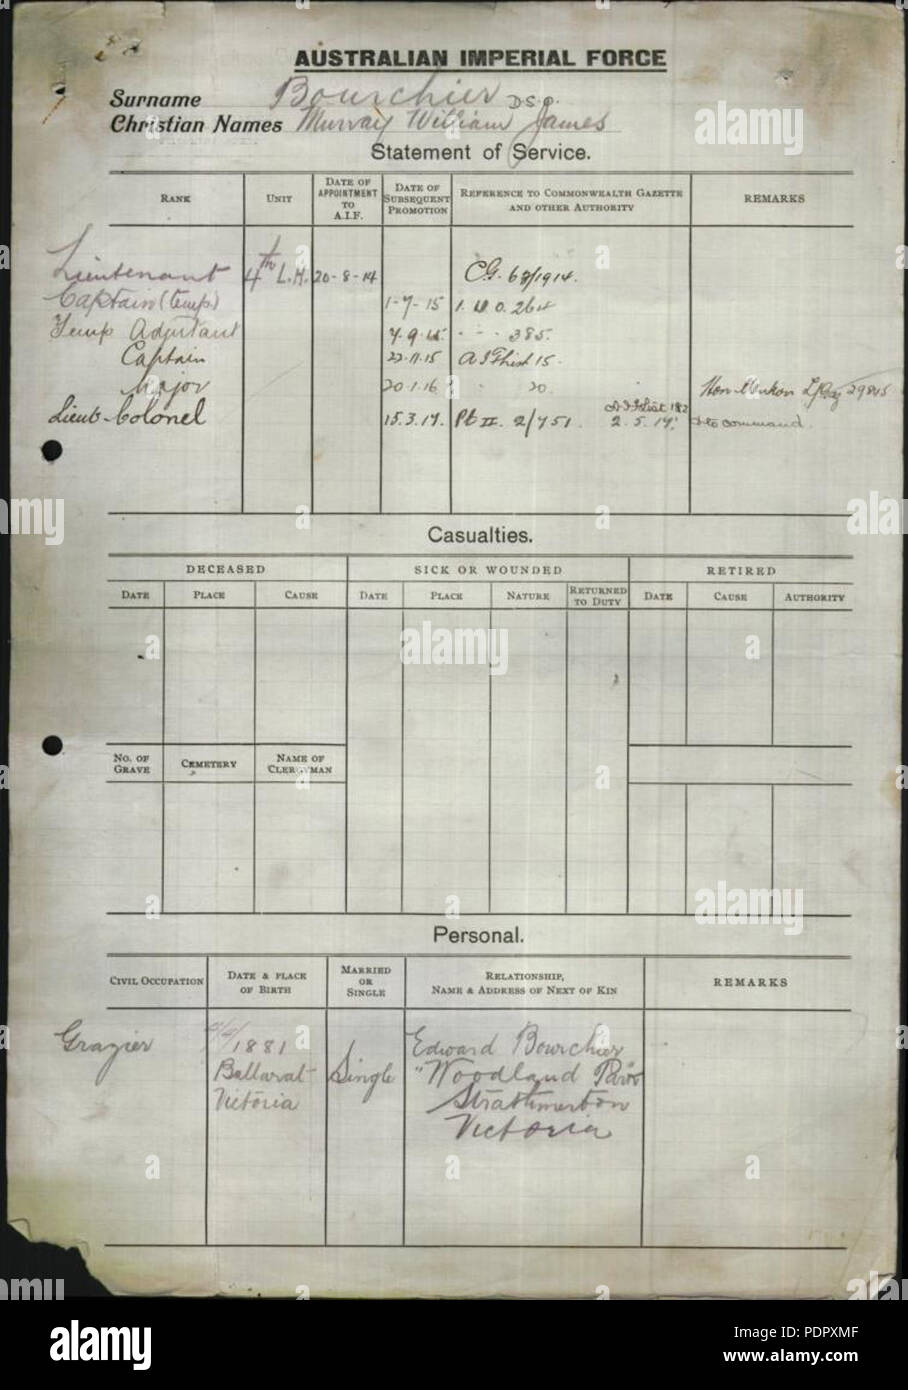 AUSTRALIAN IMPERIAL FORCE
Surname Bourchier D.S.O.
Christian Names Murray William James
Statement of Service.
RANK UNIT DATE OF APPOINTMENT TO A.I.F. DATE OF SUBSEQUENT PROMOTION REFERENCE TO COMMONWEALTH GAZETTE AND OTHER AUTHORITY REMARKS
Lieutenant 4th L.H. 20-8-14 C.G. 68/1914.
Captain (temp) 1-7-15 264
Temp Adjutant 385.
Captain 22.11.15 15.
Major 20.1.16 20. Hon
Lieut-Colonel 15.3.17. Pt II. 2/751 2.5.17. To command.
Casualties.
DECEASED SICK OR WOUNDED RETIRED
DATE PLACE CAUSE DATE PLACE NATURE RETURNED TO DUTY DATE CAUSE AUTHORITY
NO. OF GRAVE CEMETERY NAME OF CLERGYMAN
Personal.
CIVIL OCCUPATION DATE & PLACE OF BIRTH MARRIED OR SINGLE RELATIONSHIP, NAME & ADDRESS OF NEXT OF KIN REMARKS
Grazier 4/4/1881 Single Edward Bourchier
Ballarat "Woodland Park"
Victoria Strathmerton
Victoria
alamy
a
Image ID: PDPXMF
www.alamy.com